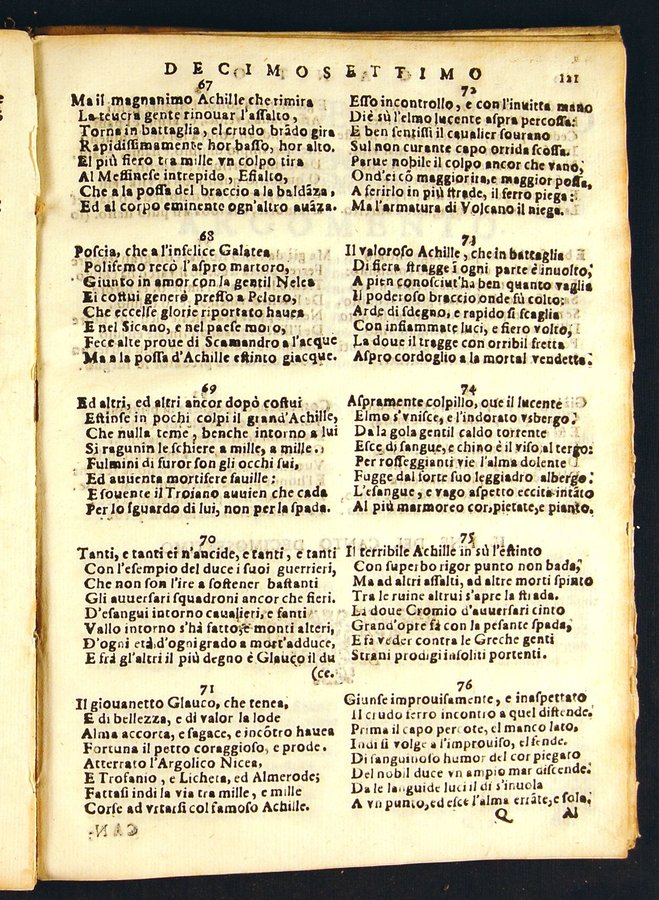 DECIMOSETTIMO
121
67
Ma il magnanimo Achille che rimira
La teucra gente rinouar l'assalto,
Torna in battaglia, el crudo brādo gira
Rapidissimamente hor basso, hor alto.
El più fiero tra mille vn colpo tira
Al Messinese intrepido, Efialto,
Che a la possa del braccio a la baldāza,
Ed al corpo eminente ogn'altro auāza.
68
Poscia, che a l'infelice Galatea
Polifemo recò l'aspro martoro,
Giunto in amor con la gentil Nelea
Ei costui generò presso a Peloro,
Che eccelse glorie riportato hauea
E nel Sicano, e nel paese moro,
Fece alte proue di Scamandro a l'acque
Ma a la possa d'Achille estinto giacque.
69
Ed altri, ed altri ancor dopò costui
Estinse in pochi colpi il grand'Achille,
Che nulla teme, benche intorno a lui
Si ragunin le schiere a mille, a mille.
Fulmini di furor son gli occhi sui,
Ed auuenta mortifere fauille:
E souente il Troiano auuien che cada
Per lo sguardo di lui, non per la spada.
70
Tanti, e tanti ei n'ancide, e tanti, e tanti
Con l'esempio del duce i suoi guerrieri,
Che non son l'ire a sostener bastanti
Gli auuersari squadroni ancor che fieri.
D'esangui intorno caualieri, e fanti
Vallo intorno s'hà fatto, e monti alteri,
D'ogni età, d'ogni grado a mort'adduce,
E frà gl'altri il più degno è Glauco il du
(ce.
71
Il giouanetto Glauco, che tenea,
E di bellezza, e di valor la lode
Alma accorta, e sagace, e incōtro hauea
Fortuna il petto coraggioso, e prode.
Atterrato l'Argolico Nicea,
E Trofanio, e Licheta, ed Almerode;
Fattasi indi la via tra mille, e mille
Corse ad vrtarsi col famoso Achille.
72
Esso incontrollo, e con l'inuitta mano
Diè sù l'elmo lucente aspra percossa:
E ben sentissi il caualier sourano
Sul non curante capo orrida scossa.
Parue nobile il colpo ancor che vano,
Ond'ei cō maggior ira, e maggior possa,
A ferirlo in più strade, il ferro piega:
Ma l'armatura di Volcano il niega.
73
Il valoroso Achille, che in battaglia
Di fiera stragge i ogni parte è inuolto,
A pien conosciut'ha ben quanto vaglia
Il poderoso braccio onde fù colto:
Arde di sdegno, e rapido si scaglia
Con infiammate luci, e fiero volto,
La doue il tragge con orribil fretta
Aspro cordoglio a la mortal vendetta.
74
Aspramente colpillo, oue il lucente
Elmo s'vnisce, e l'indorato vsbergo.
Da la gola gentil caldo torrente
Esce di sangue, e chino è il viso al tergo:
Per rosseggianti vie l'alma dolente
Fugge dal forte suo leggiadro albergo.
L'esangue, e vago aspetto eccita intāto
Al più marmoreo cor, pietate, e pianto.
75
Il terribile Achille in sù l'estinto
Con superbo rigor punto non bada,
Ma ad altri assalti, ad altre morti spinto
Tra le ruine altrui s'apre la strada.
Là doue Cromio d'auuersari cinto
Grand'opre fà con la pesante spada,
E fà veder contra le Greche genti
Strani prodigi insoliti portenti.
76
Giunse improuisamente, e inaspettato
Il crudo ferro incontro a quel distende.
Prima il capo percote, el manco lato,
Indi si volge a l'improuiso, el fende.
Di sanguinoso humor del cor piegato
Del nobil duce vn ampio mar discende.
Da le languide luci il dì s'inuola
A vn punto, ed esce l'alma errāte, e sola.
Q
Al